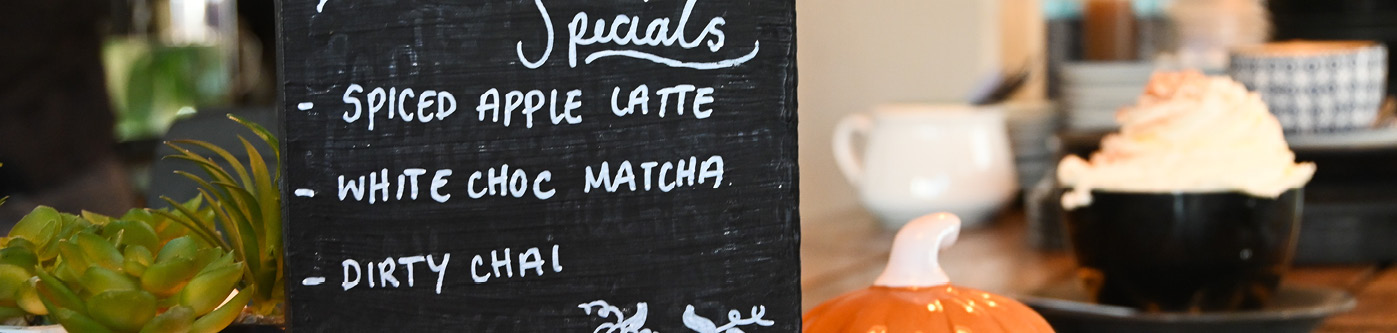 Specials
- SPICED APPLE LATTE
- WHITE CHOC MATCHA
- DIRTY CHAI